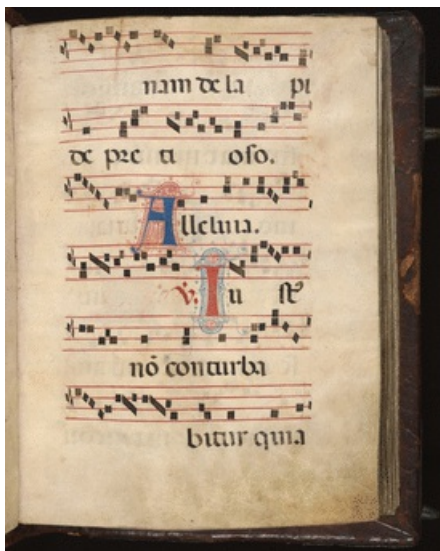 nam de la pi
de pre ti oso.
Alleluia.
℣. Iu ste
nõ conturba
bitur quia